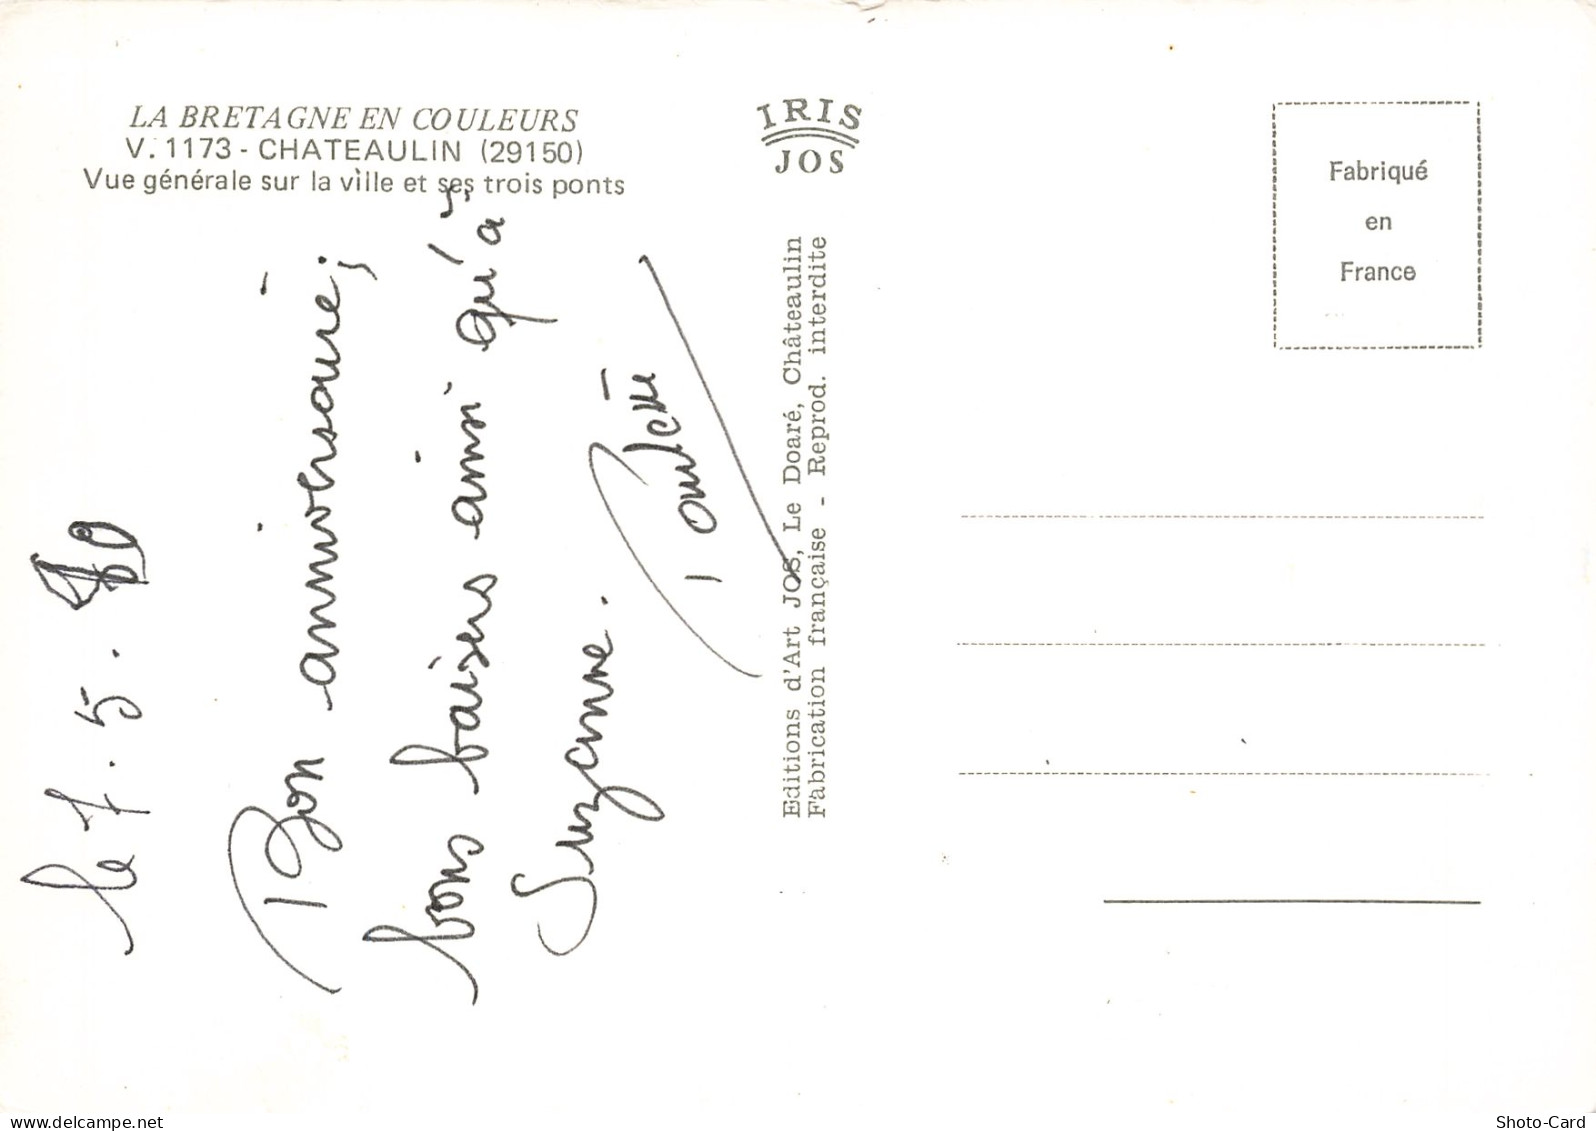 LA BRETAGNE EN COULEURS
V. 1173 - CHATEAULIN (29150)
Vue générale sur la ville et ses trois ponts
le 7.5.80
Bon anniversaire,
bons baisers ainsi qu'à
Suzanne.
IRIS
JOS
Editions d'Art JOS, Le Doaré, Châteaulin
Fabrication française - Reprod. interdite
Fabriqué
en
France
Shoto-Card